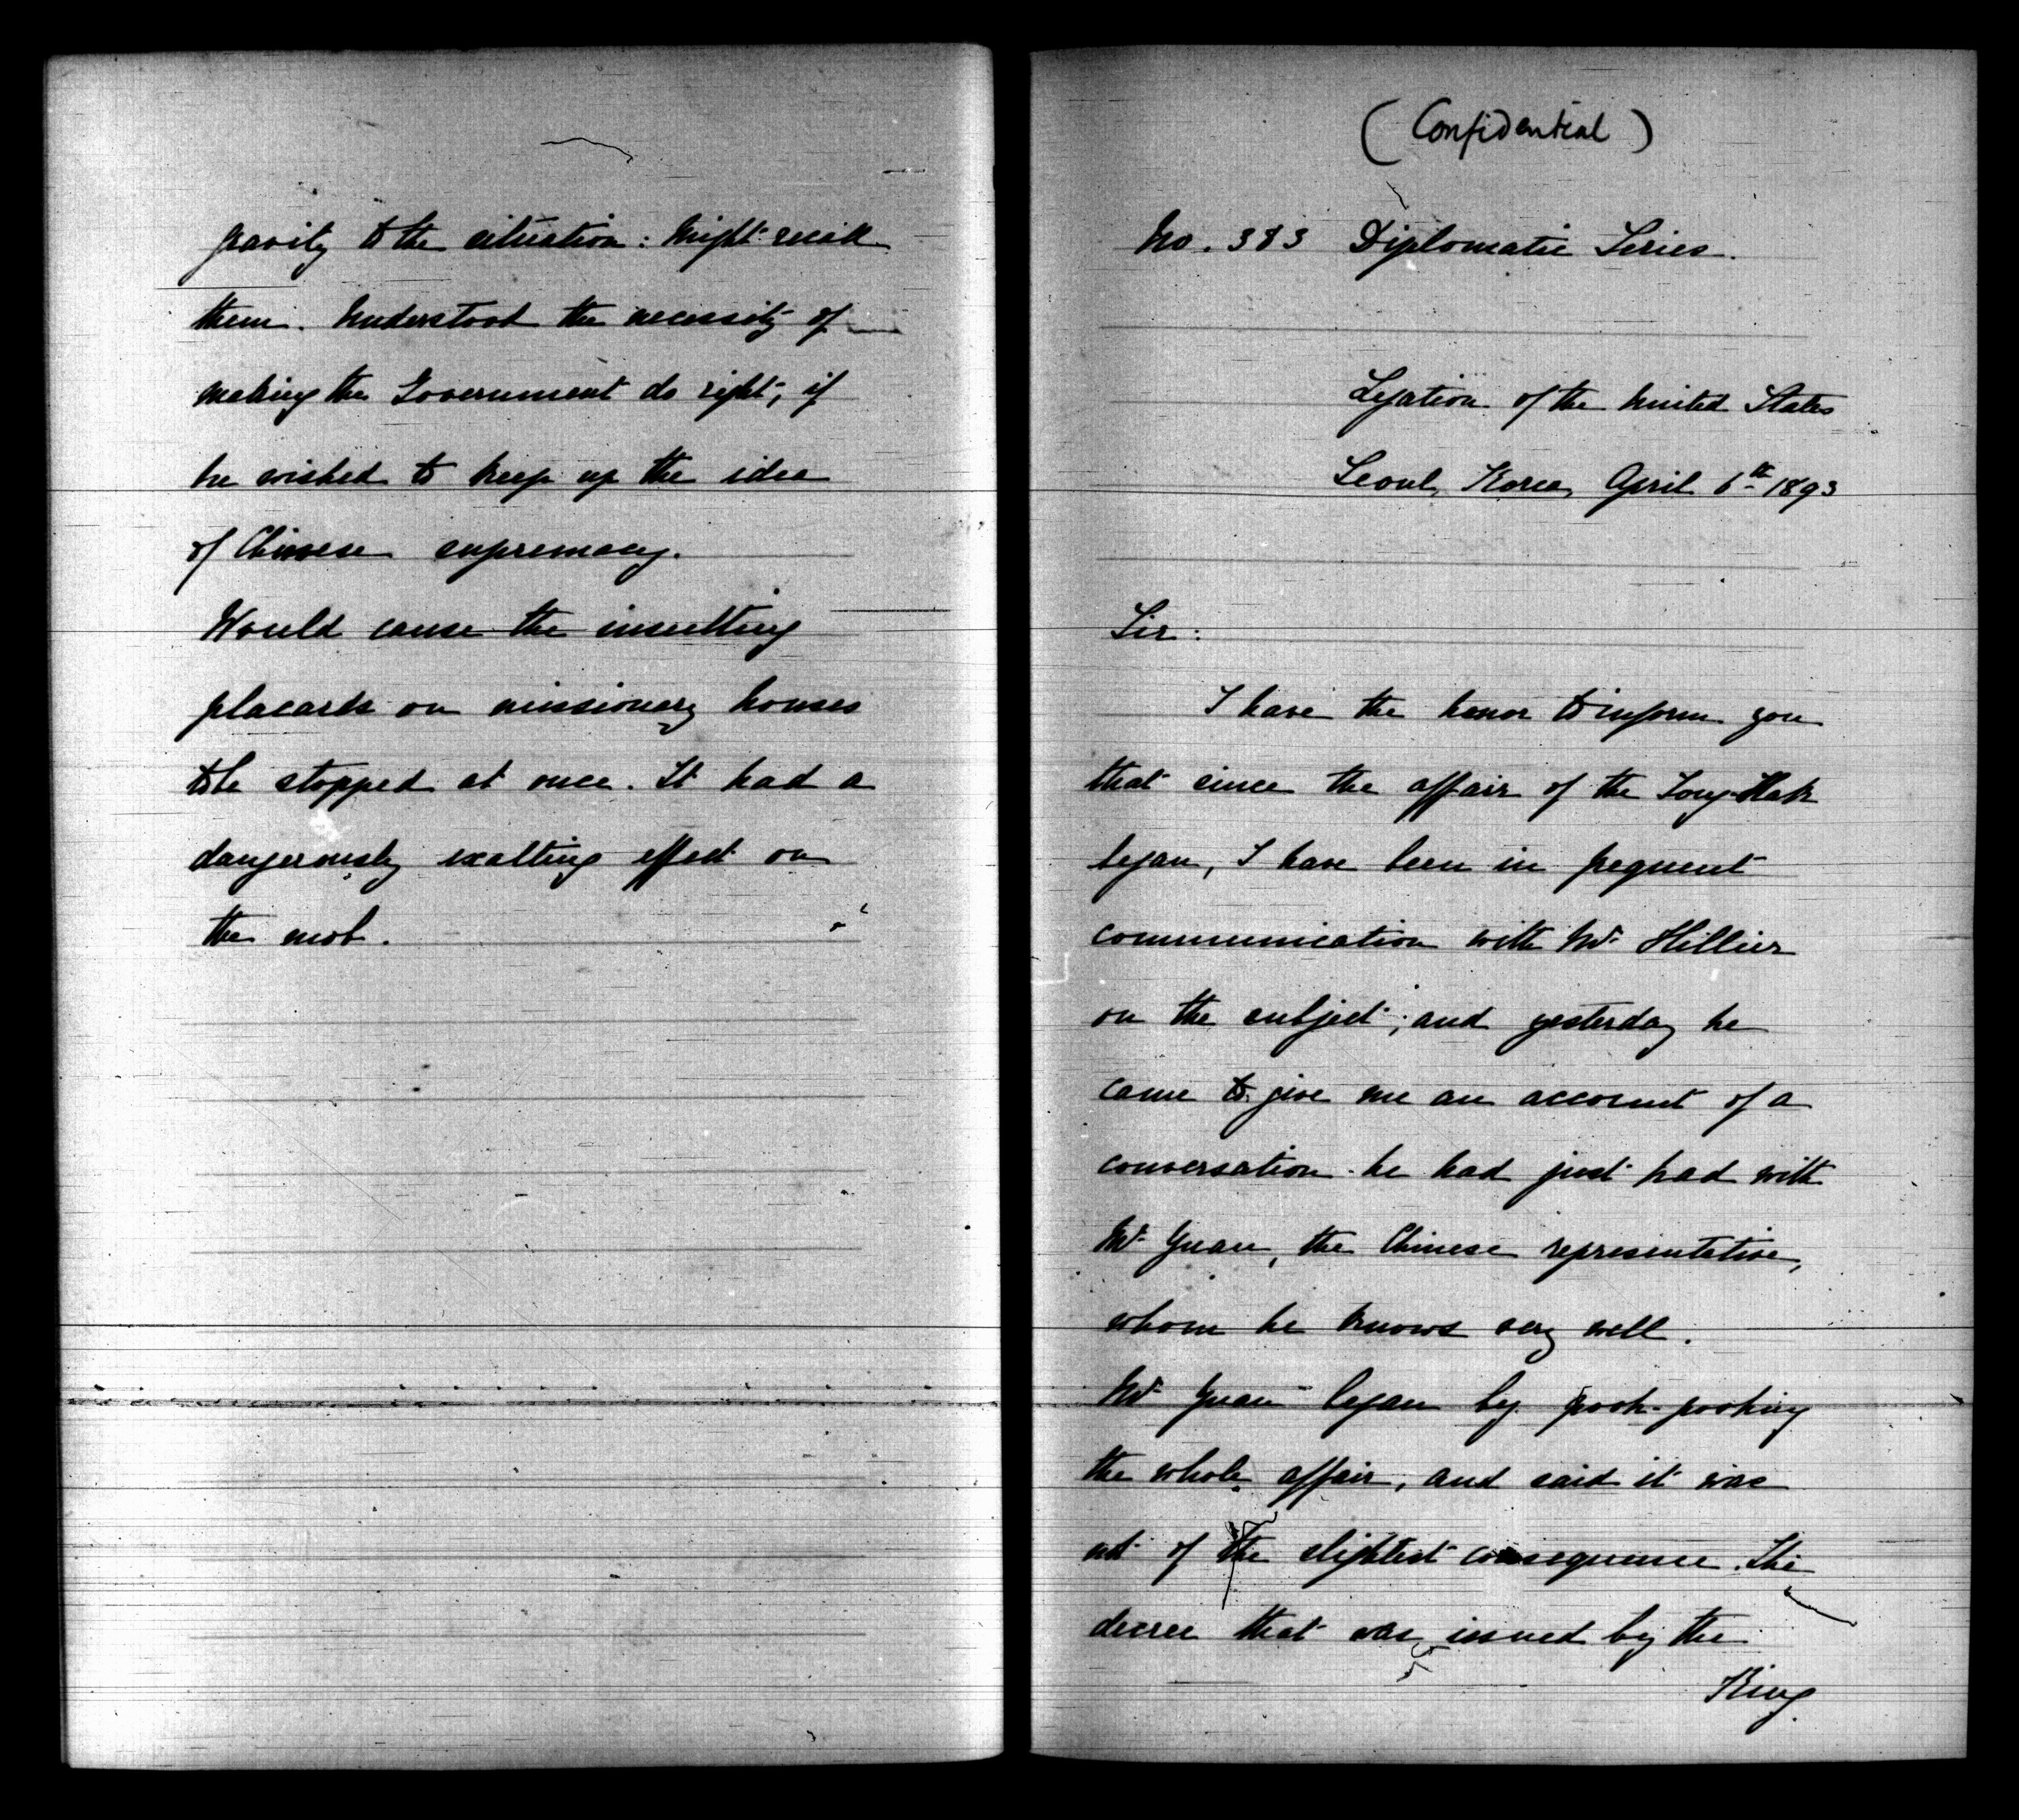 gravity to the situation: might
them. Understood the necessity of
making the Government do right, if
he wished to keep up the idea
of Chinese supremacy.
Would cause the insulting
placards on missionary houses
to be stopped at once. It had a
dangerously exalting effect on
the mob.
(Confidential)
No. 383 Diplomatic Series.
Legation of the United States
Seoul, Korea, April 6th 1893
Sir:
I have the honor to inform you
that since the affair of the Tong-Hak
began, I have been in frequent
communication with Mr Hillier
on the subject; and yesterday he
came to give me an account of a
conversation he had just had with
Mr Yuan, the Chinese representative,
whom he knows very well.
Mr Yuan began by pooh-poohing
the whole affair, and said it was
not of the slightest consequence. The
decree that was issued by the
King